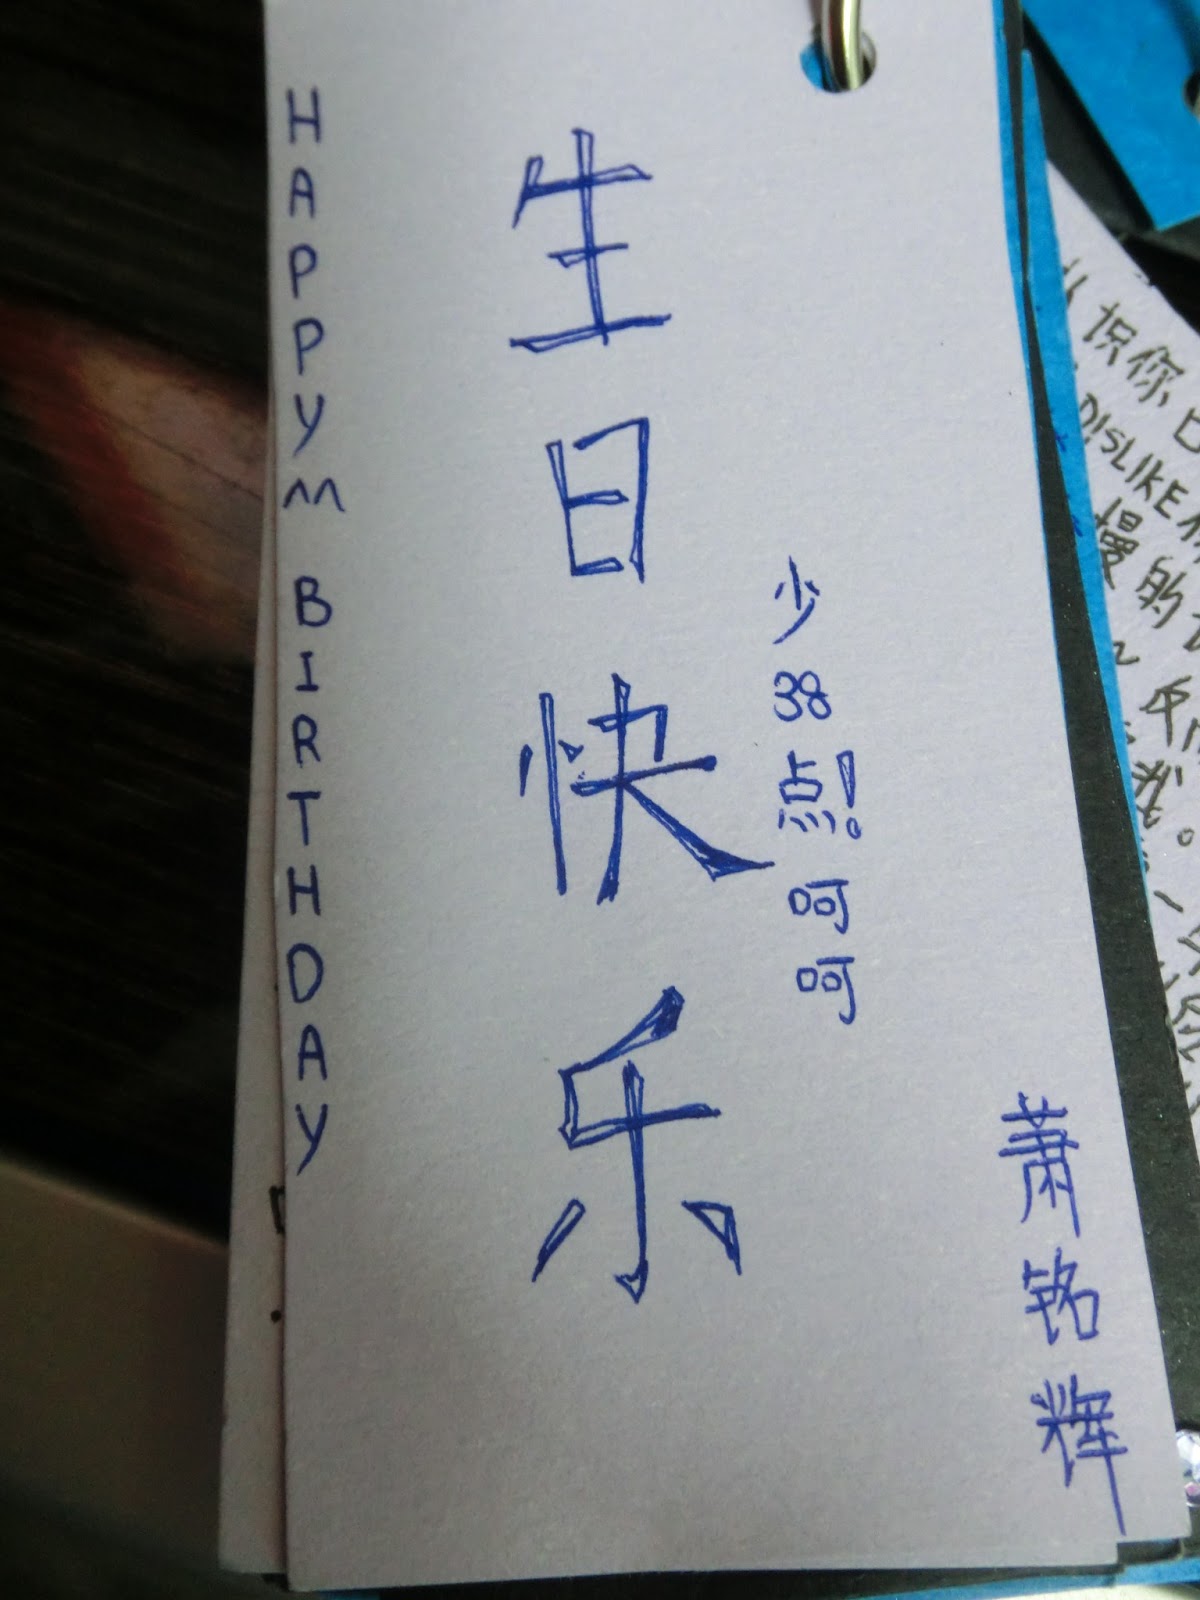 HAPPY ^^ BIRTHDAY
生日快乐
少38点!呵呵
萧铭辉
识你
DISLIKE
慢的
我。